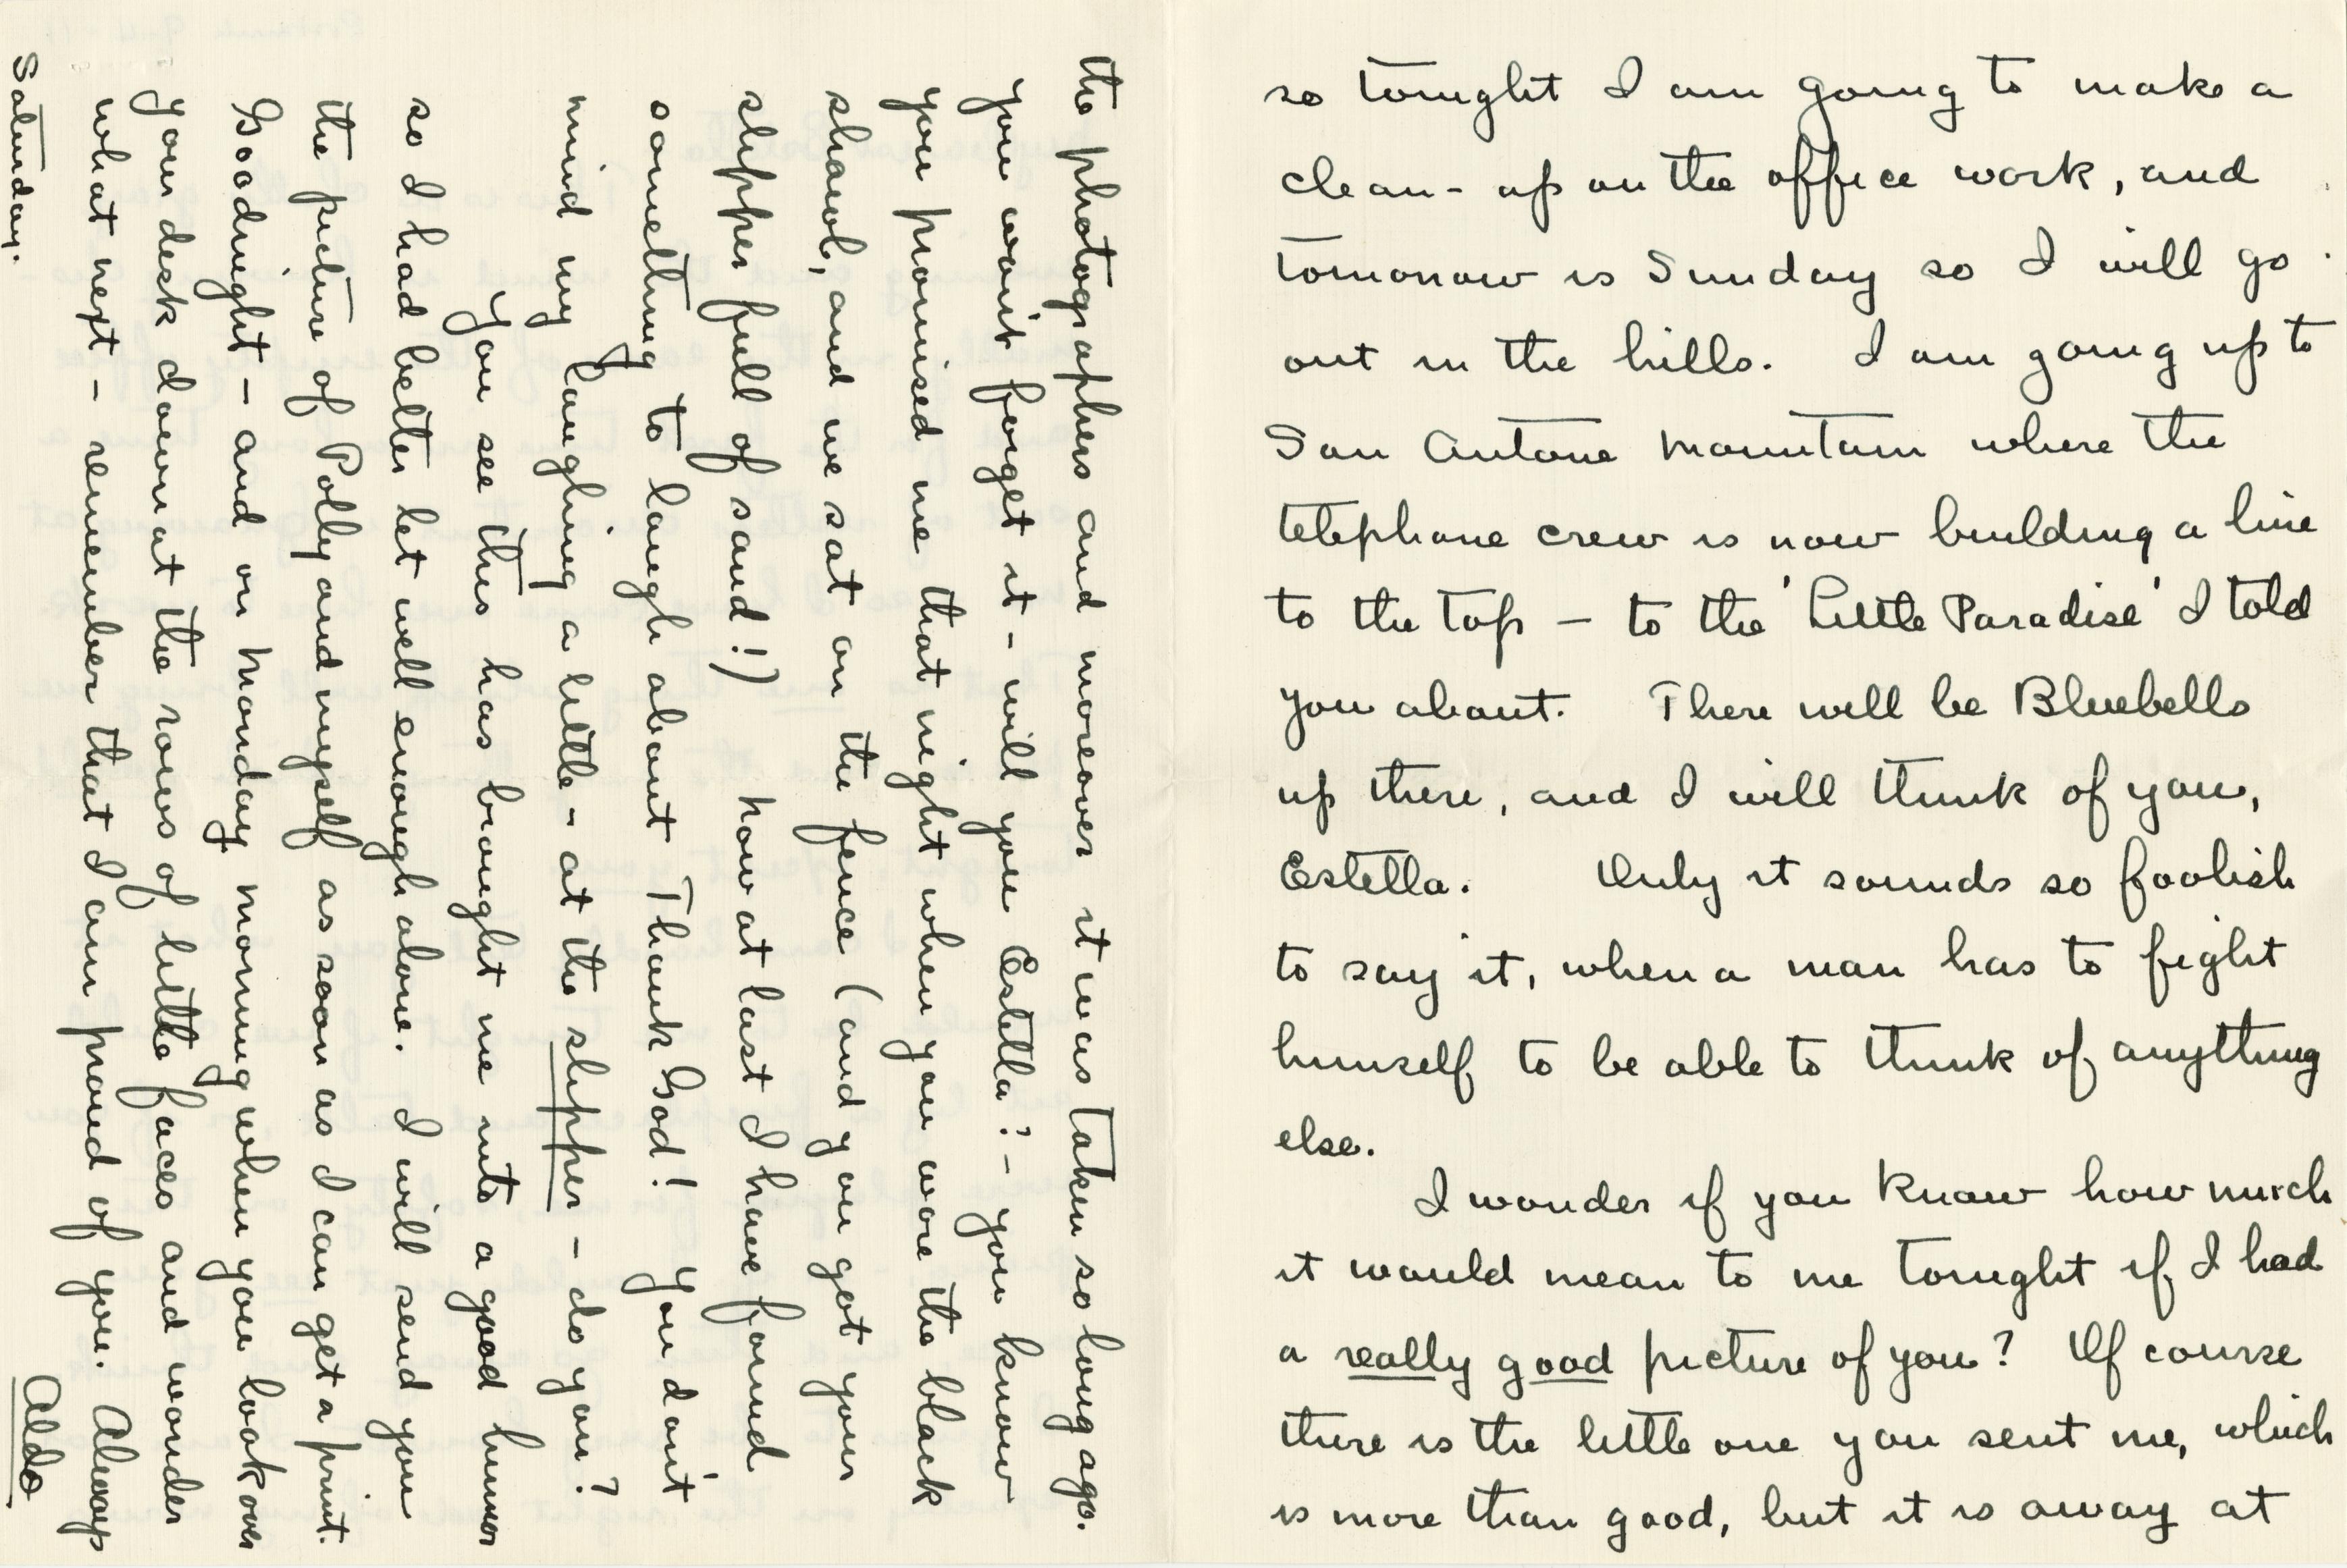 so tonight I am going to make a
clean-up on the office work, and
tomorrow is Sunday so I will go
out in the hills. I am going up to
San Antone Mountain where the
telephone crew is now building a line
to the top – to the 'Little Paradise' I told
you about. There will be Bluebells
up there, and I will think of you,
Estella. Only it sounds so foolish
to say it, when a man has to fight
himself to be able to think of anything
else.
I wonder if you know how much
it would mean to me tonight if I had
a really good picture of you? Of course
there is the little one you sent me, which
is more than good, but it is away at
the photographers and moreover it was taken so long ago.
you won't forget it – will you Estella? – you know
you promised me that night when you wore the black
shawl, and we sat on the fence (and you got your
slipper full of sand!) Now at last I have found
something to laugh about Thank God! You don't
mind my laughing a little – at the slipper – do you?
You see this has brought me into a good humor
so I had better let well enough alone. I will send you
the picture of Polly and myself as soon as I can get a print.
Goodnight – and on Monday morning when you look over
your desk down at the rows of little faces and wonder
what next – remember that I am proud of you. Always
Aldo
Saturday.